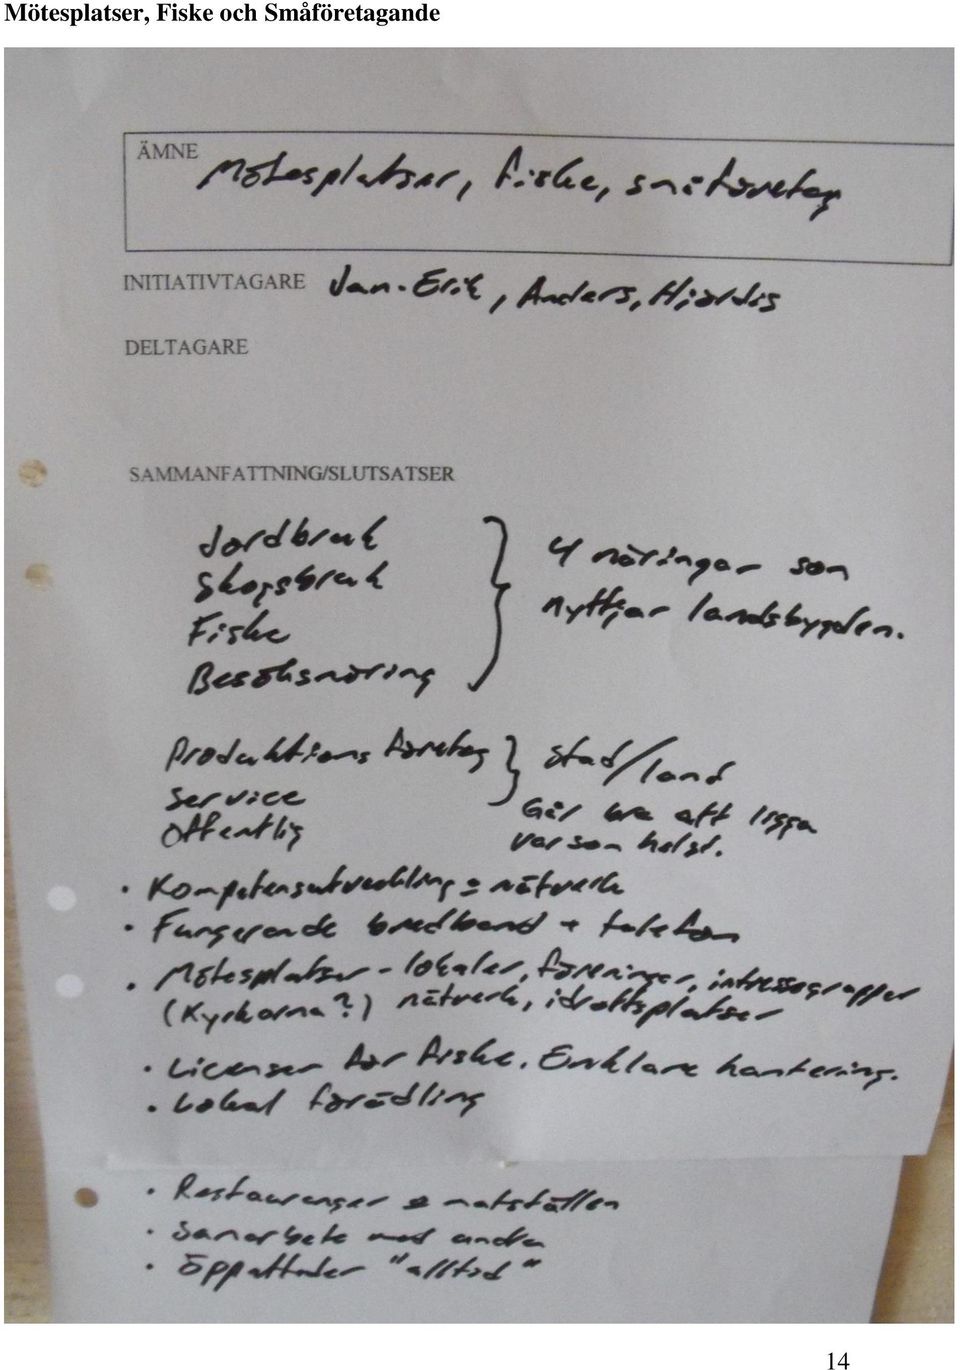 Mötesplatser, Fiske och Småföretagande
ÄMNE Mötesplatser, fiske, småföretag
INITIATIVTAGARE Jan-Erik, Anders, Hjördis
DELTAGARE
SAMMANFATTNING/SLUTSATSER
Jordbruk
Skogsbruk
Fiske
Besöksnäring
4 näringar som
nyttjar landsbygden.
Produktionsföretag
Service
Offentlig
stad/land
Går bra att ligga
var som helst.
• Kompetensutveckling = nätverk
• Fungerande bredband + telefon
• Mötesplatser - lokaler, föreningar, intressegrupper
(Kyrkorna?) nätverk, idrottsplatser
• Licenser för fiske. Enklare hantering.
• Lokal förädling
• Restauranger matställen
• Samarbete med andra
• Öppettider "alltid"
14